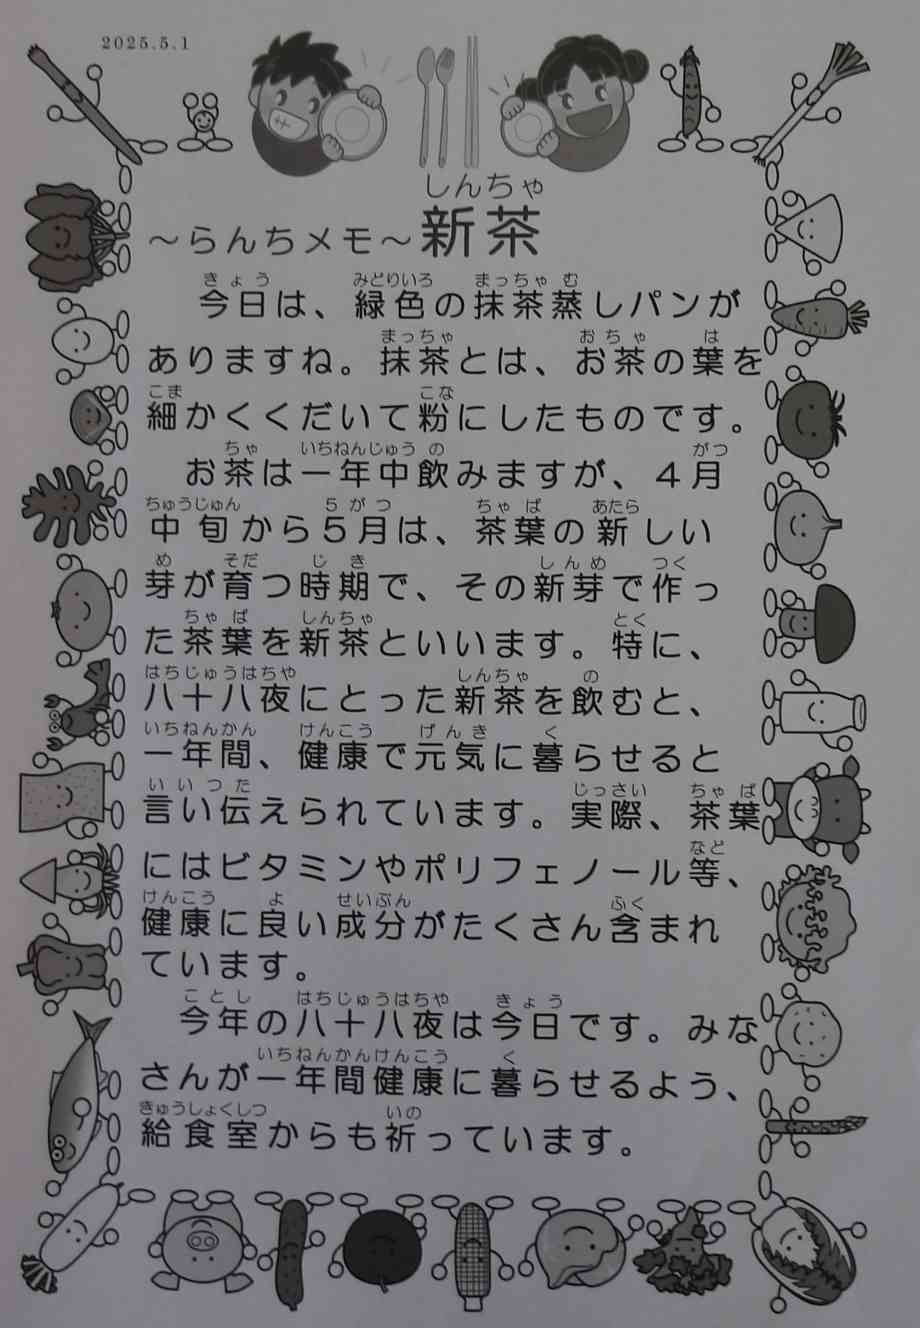 2025.5.1
しんちゃ
～らんちメモ～新茶
きょう みどりいろ まっちゃ む
今日は、緑色の抹茶蒸しパンが
まっちゃ おちゃ は
ありますね。抹茶とは、お茶の葉を
こま こな
細かくくだいて粉にしたものです。
ちゃ いちねんじゅう の がつ
お茶は一年中飲みますが、４月
ちゅうじゅん ５がつ ちゃば あたら
中旬から５月は、茶葉の新しい
め そだ じき しんめ つく
芽が育つ時期で、その新芽で作っ
ちゃば しんちゃ とく
た茶葉を新茶といいます。特に、
はちじゅうはちや しんちゃ の
八十八夜にとった新茶を飲むと、
いちねんかん けんこう げんき く
一年間、健康で元気に暮らせると
いいつた じっさい ちゃば
言い伝えられています。実際、茶葉
など
にはビタミンやポリフェノール等、
けんこう よ せいぶん ふく
健康に良い成分がたくさん含まれ
ています。
ことし はちじゅうはちや きょう
今年の八十八夜は今日です。みな
いちねんかんけんこう く
さんが一年間健康に暮らせるよう、
きゅうしょくしつ いの
給食室からも祈っています。